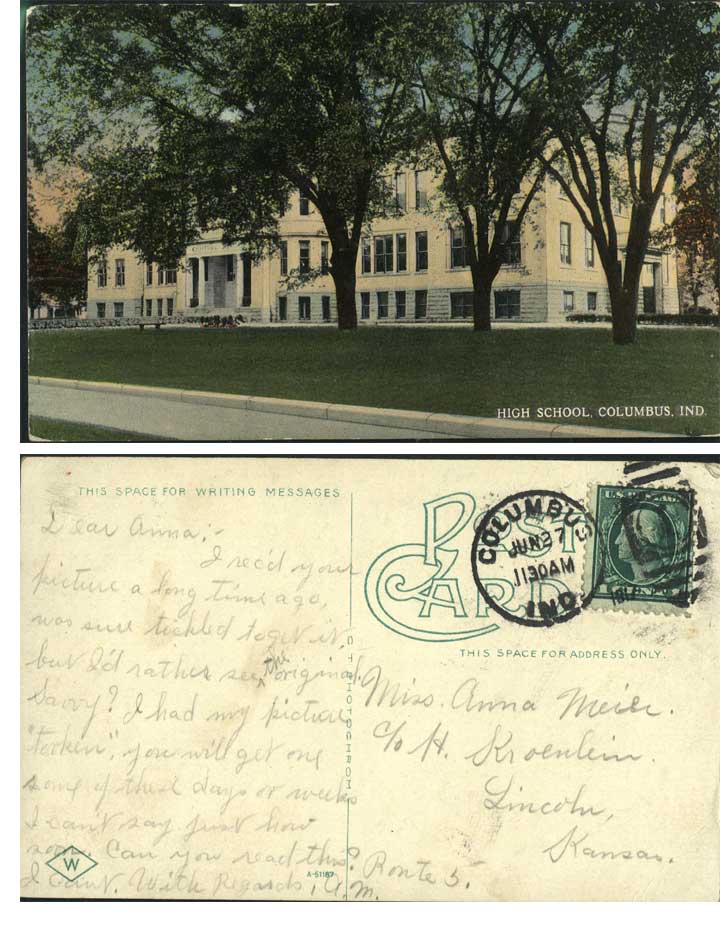 HIGH SCHOOL, COLUMBUS, IND.
THIS SPACE FOR WRITING MESSAGES
Dear Anna;-
I rec'd your
picture a long time ago,
was sure tickled to get it,
but I'd rather see the original.
Savvy? I had my picture
"tooken", you will get one
some of these days or weeks
I can't say just how
soon. Can you read this?
I can't. With Regards, A.M.
W
A-51187
POST CARD
COLUMBUS
JUN 27
1130AM
IND.
THIS SPACE FOR ADDRESS ONLY.
Miss. Anna Meier.
c/o H. Kroenlein.
Lincoln,
Kansas.
Route 5.